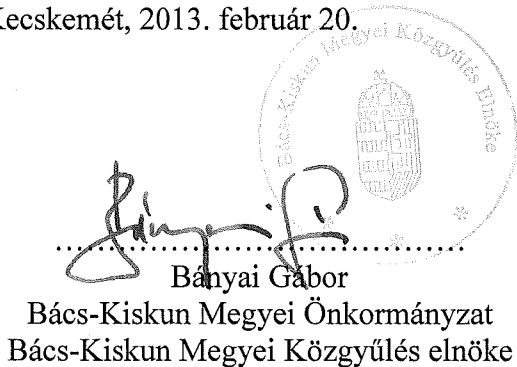 Kecskemét, 2013. február 20.
Bács-Kiskun Megyei Közgyűlés Elnöke
Bányai G
....................................................
Bányai Gábor
Bács-Kiskun Megyei Önkormányzat
Bács-Kiskun Megyei Közgyűlés elnöke